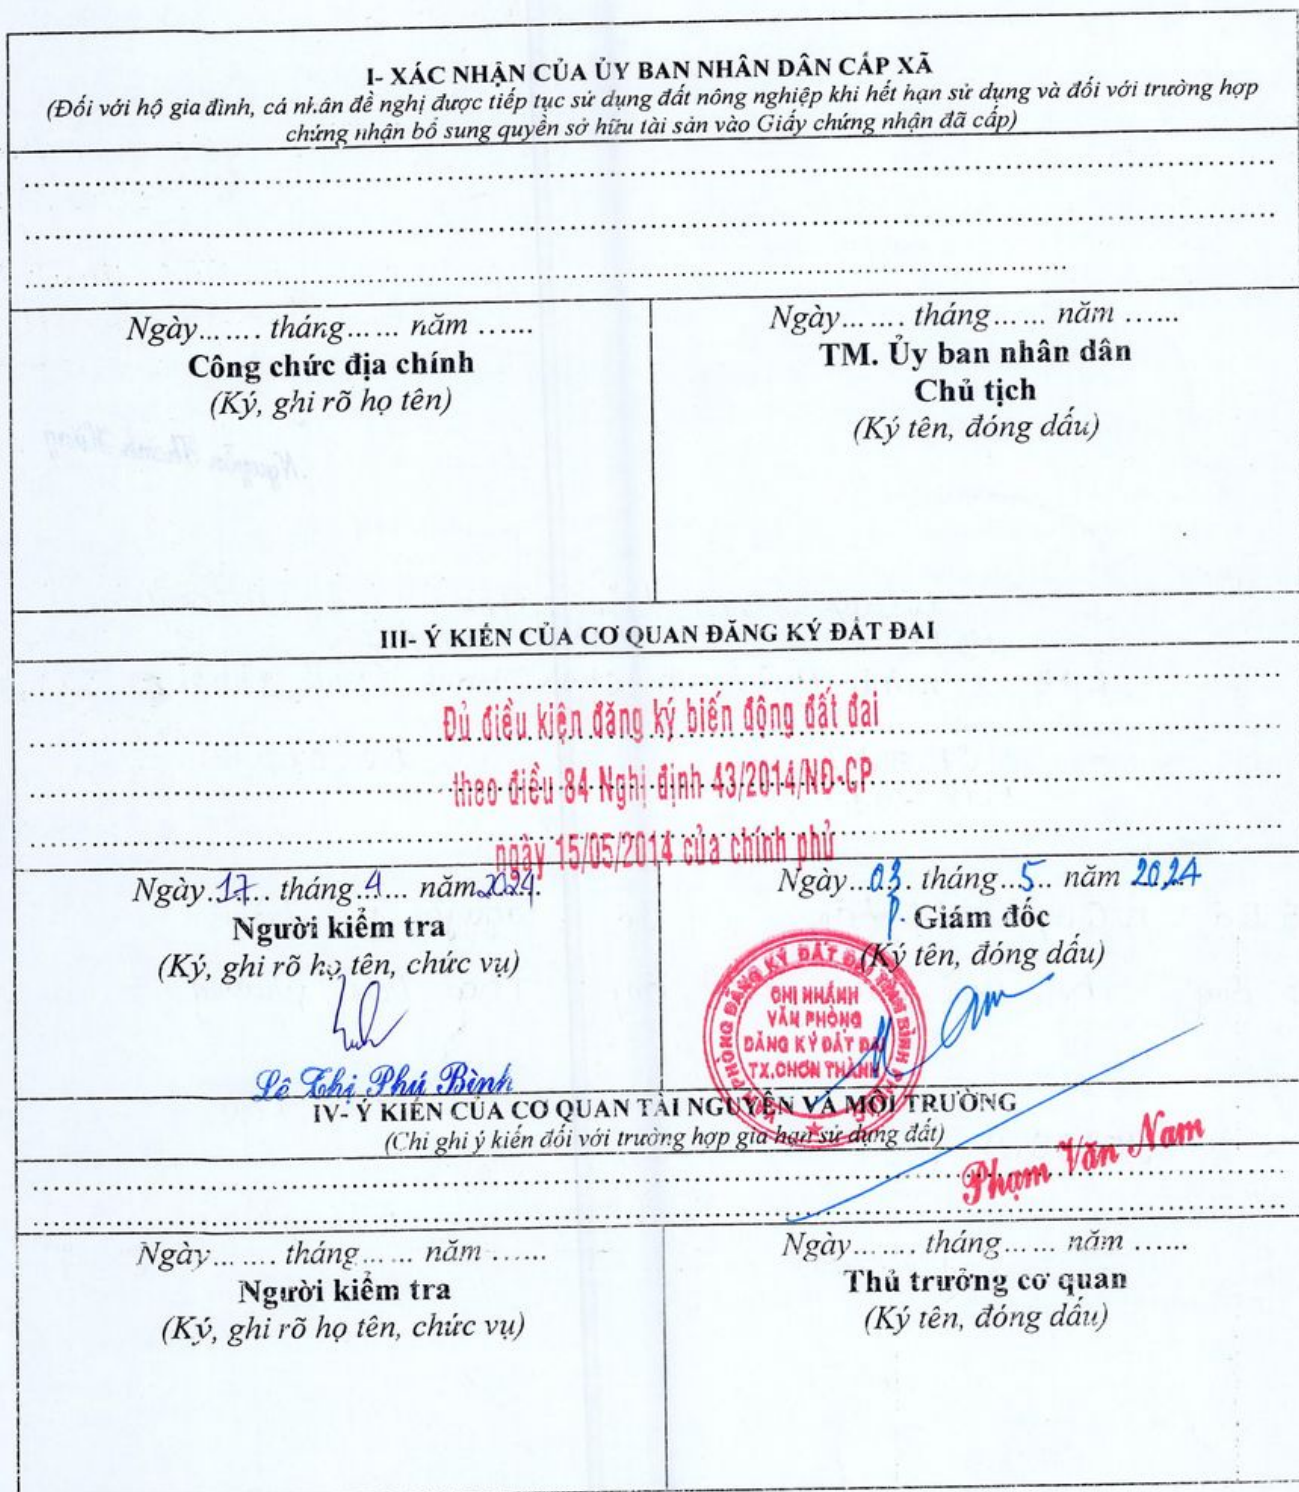 I- XÁC NHẬN CỦA ỦY BAN NHÂN DÂN CẤP XÃ
(Đối với hộ gia đình, cá nhân đề nghị được tiếp tục sử dụng đất nông nghiệp khi hết hạn sử dụng và đối với trường hợp
chứng nhận bổ sung quyền sở hữu tài sản vào Giấy chứng nhận đã cấp)
Ngày....... tháng...... năm ......
Công chức địa chính
(Ký, ghi rõ họ tên)
Ngày....... tháng...... năm ......
TM. Ủy ban nhân dân
Chủ tịch
(Ký tên, đóng dấu)
III- Ý KIẾN CỦA CƠ QUAN ĐĂNG KÝ ĐẤT ĐAI
Đủ điều kiện đăng ký biến động đất đai
theo điều 84 Nghị định 43/2014/NĐ-CP
ngày 15/05/2014 của chính phủ
Ngày.17.. tháng.4... năm.2024.
Người kiểm tra
(Ký, ghi rõ họ tên, chức vụ)
Lê Thị Phú Bình
Ngày...03. tháng...5.. năm 2024
P. Giám đốc
(Ký tên, đóng dấu)
VĂN PHÒNG ĐĂNG KÝ ĐẤT ĐAI TỈNH BÌNH PHƯỚC
CHI NHÁNH
VĂN PHÒNG
ĐĂNG KÝ ĐẤT ĐAI
TX.CHƠN THÀNH
Phạm Văn Nam
IV- Ý KIẾN CỦA CƠ QUAN TÀI NGUYÊN VÀ MÔI TRƯỜNG
(Chỉ ghi ý kiến đối với trường hợp gia hạn sử dụng đất)
Ngày....... tháng...... năm ......
Người kiểm tra
(Ký, ghi rõ họ tên, chức vụ)
Ngày....... tháng...... năm ......
Thủ trưởng cơ quan
(Ký tên, đóng dấu)